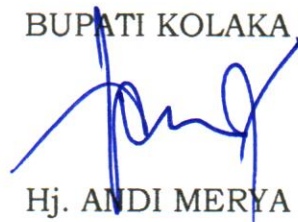 BUPATI KOLAKA
Hj. ANDI MERYA